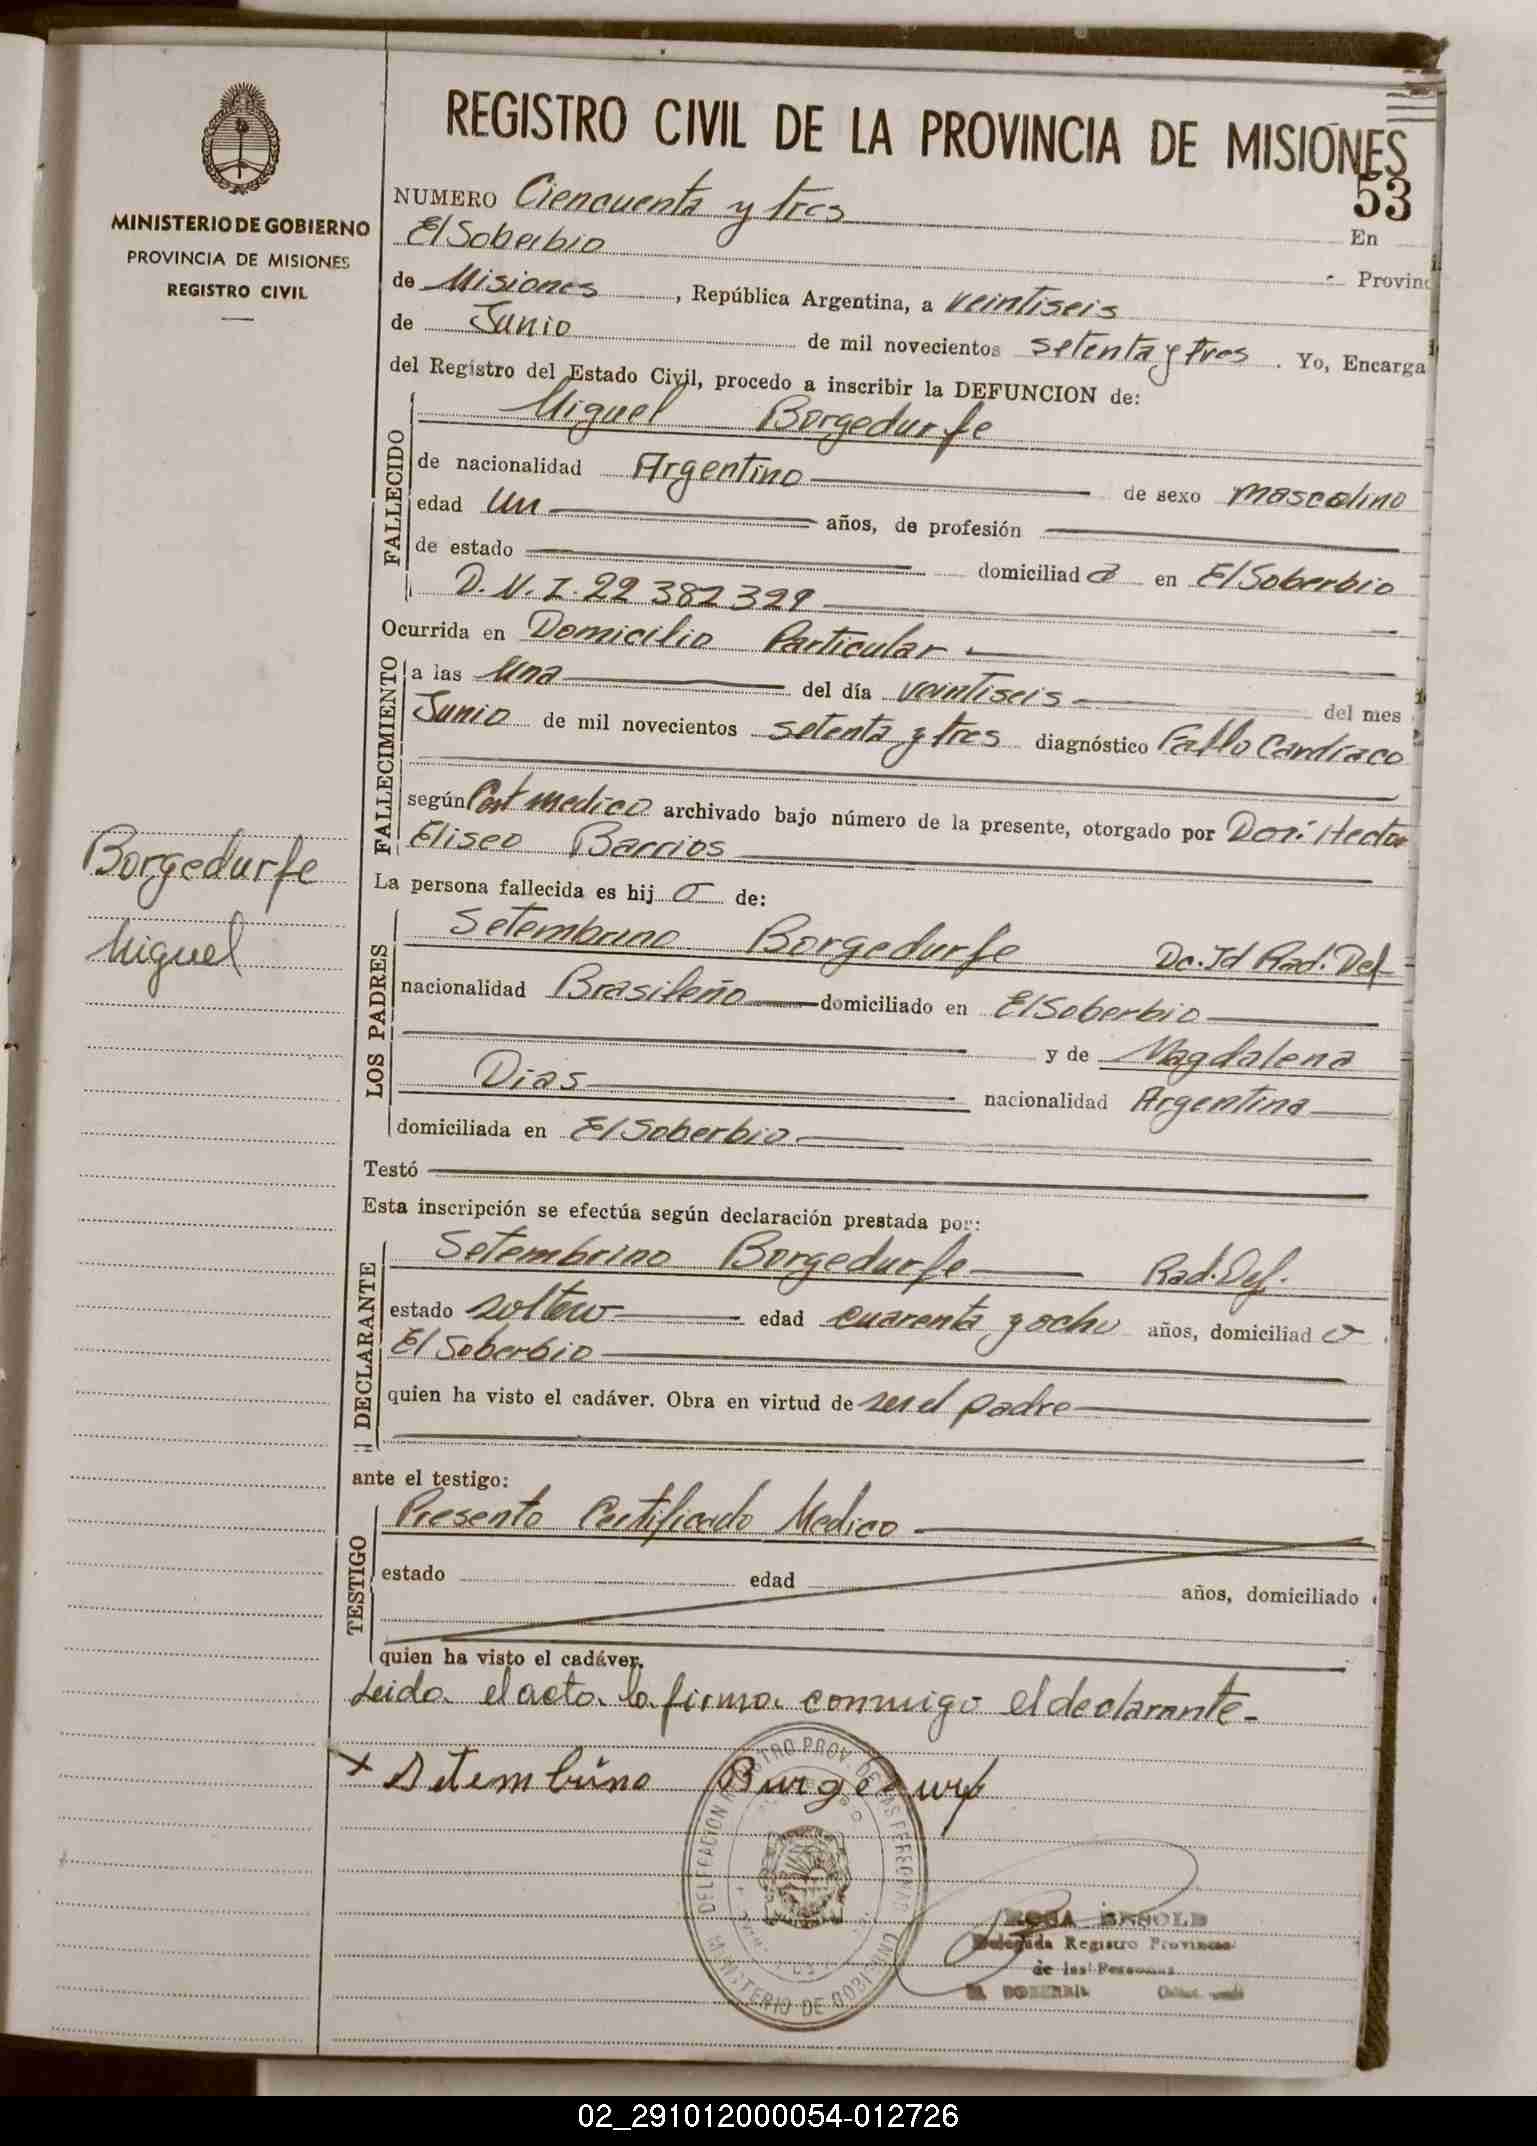 REGISTRO CIVIL DE LA PROVINCIA DE MISIONES
MINISTERIO DE GOBIERNO
PROVINCIA DE MISIONES
REGISTRO CIVIL
53
NUMERO Ciencuenta y tres
En
El Soberbio
Provinc
de Misiones, República Argentina, a veintiseis
de Junio de mil novecientos setenta y tres. Yo, Encarga
del Registro del Estado Civil, procedo a inscribir la DEFUNCION de:
FALLECIDO
Miguel Borgedurfe
de nacionalidad Argentino de sexo mascolino
edad un años, de profesión
de estado domiciliad o en El Soberbio
D.N.I. 22 382 329
FALLECIMIENTO
Ocurrida en Domicilio Particular.
a las una del día veintiseis del mes
Junio de mil novecientos setenta y tres diagnóstico Fallo Cardiaco
según Cert medico archivado bajo número de la presente, otorgado por Dor: Hector
Eliseo Barrios
Borgedurfe
Miguel
La persona fallecida es hij o de:
LOS PADRES
Setembrino Borgedurfe Dc. Id Rad. Def
nacionalidad Brasileño domiciliado en El Soberbio
y de Magdalena
Dias nacionalidad Argentina
domiciliada en El Soberbio
Testó
Esta inscripción se efectúa según declaración prestada por:
DECLARANTE
Setembrino Borgedurfe Rad. Def.
estado soltero edad cuarenta y ocho años, domiciliad o
El Soberbio
quien ha visto el cadáver. Obra en virtud de ser el padre
ante el testigo:
TESTIGO
Presento Certificado Medico
estado edad años, domiciliado
quien ha visto el cadáver.
Leida el acta la firma conmigo el declarante-
x Setembrino Burgedurf
DELEGACION REGISTRO PROV. DE LAS PERSONAS
MINISTERIO DE GOBIERNO
ROSA BESOLD
Delegada Registro Provincial
de las Personas
EL SOBERBIO
02_291012000054-012726